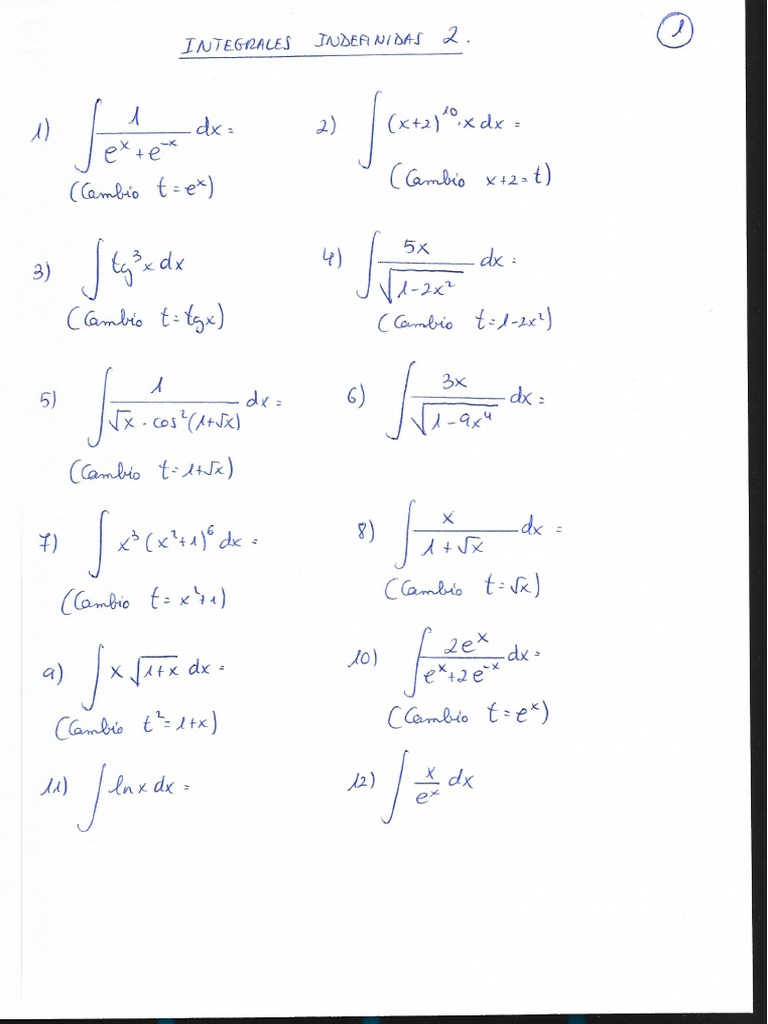 INTEGRALES INDEFINIDAS 2.
1
1) ∫ 1/(eˣ + e⁻ˣ) dx =
(Cambio t = eˣ)
2) ∫ (x+2)¹⁰·x dx =
(Cambio x+2 = t)
3) ∫ tg³x dx
(Cambio t = tgx)
4) ∫ 5x/√(1-2x²) dx =
(Cambio t = 1-2x²)
5) ∫ 1/(√x · cos²(1+√x)) dx =
(Cambio t = 1+√x)
6) ∫ 3x/√(1-9x⁴) dx =
7) ∫ x³(x²+1)⁶ dx =
(Cambio t = x²+1)
8) ∫ x/(1+√x) dx =
(Cambio t = √x)
9) ∫ x√(1+x) dx =
(Cambio t² = 1+x)
10) ∫ 2eˣ/(eˣ+2e⁻ˣ) dx =
(Cambio t = eˣ)
11) ∫ ln x dx =
12) ∫ x/eˣ dx